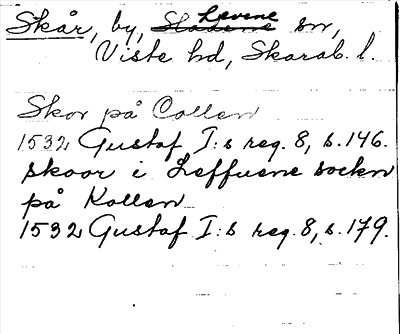 Skår, by, Levene sn,
Viste hd, Skarab. l.
Skor på Collen
1532 Gustaf I:s reg. 8, s. 146.
skoor i Leffuene sockn
på Kollen
1532 Gustaf I:s reg. 8, s. 179.